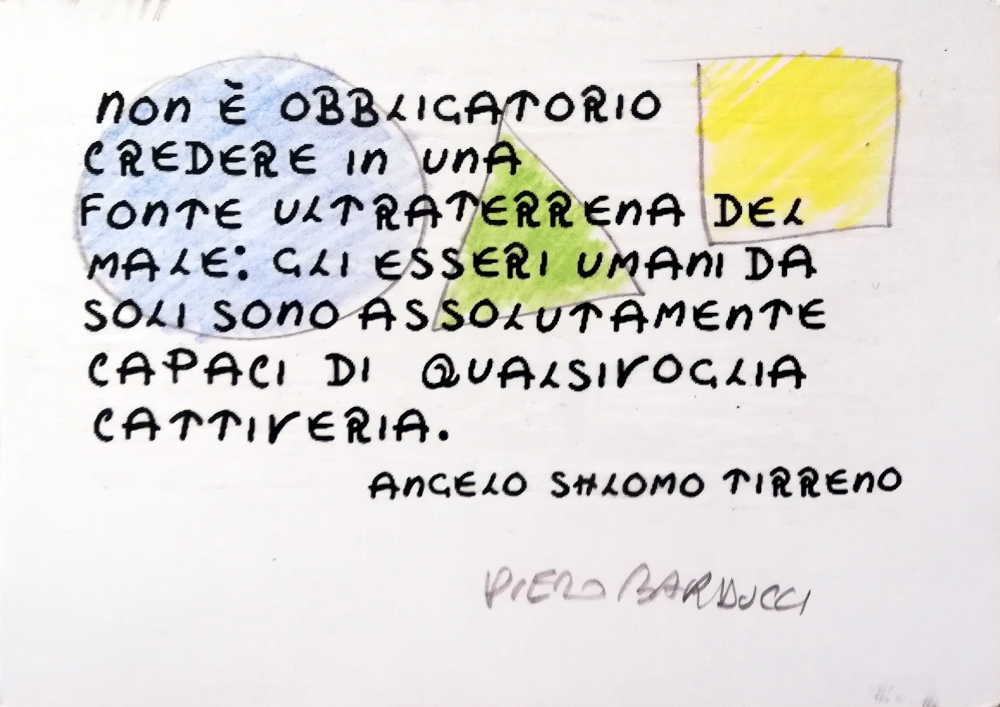 NON È OBBLIGATORIO
CREDERE IN UNA
FONTE ULTRATERRENA DEL
MALE: GLI ESSERI UMANI DA
SOLI SONO ASSOLUTAMENTE
CAPACI DI QUALSIVOGLIA
CATTIVERIA.
ANGELO SHLOMO TIRRENO
PIERO BARDUCCI